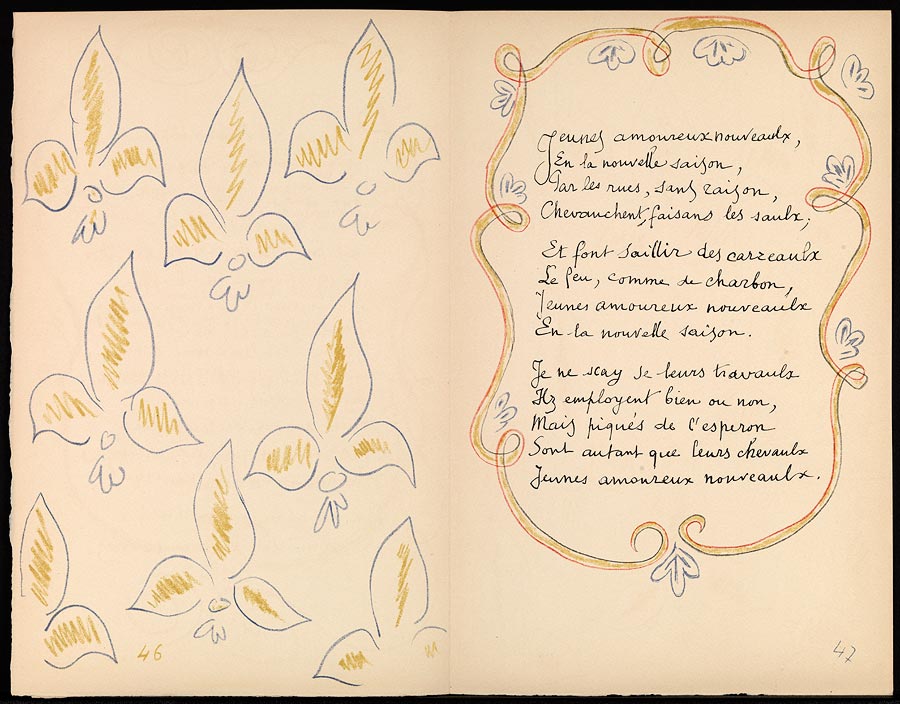 46
Jeunes amoureux nouveaulx,
En la nouvelle saison,
Par les rues, sans raison,
Chevauchent, faisans les saulx;
Et font saillir des carreaulx
Le feu, comme de charbon,
Jeunes amoureux nouveaulx
En la nouvelle saison.
Je ne sçay se leurs travaulx
Ilz employent bien ou non,
Mais piqués de l'esperon
Sont autant que leurs chevaulx
Jeunes amoureux nouveaulx.
47